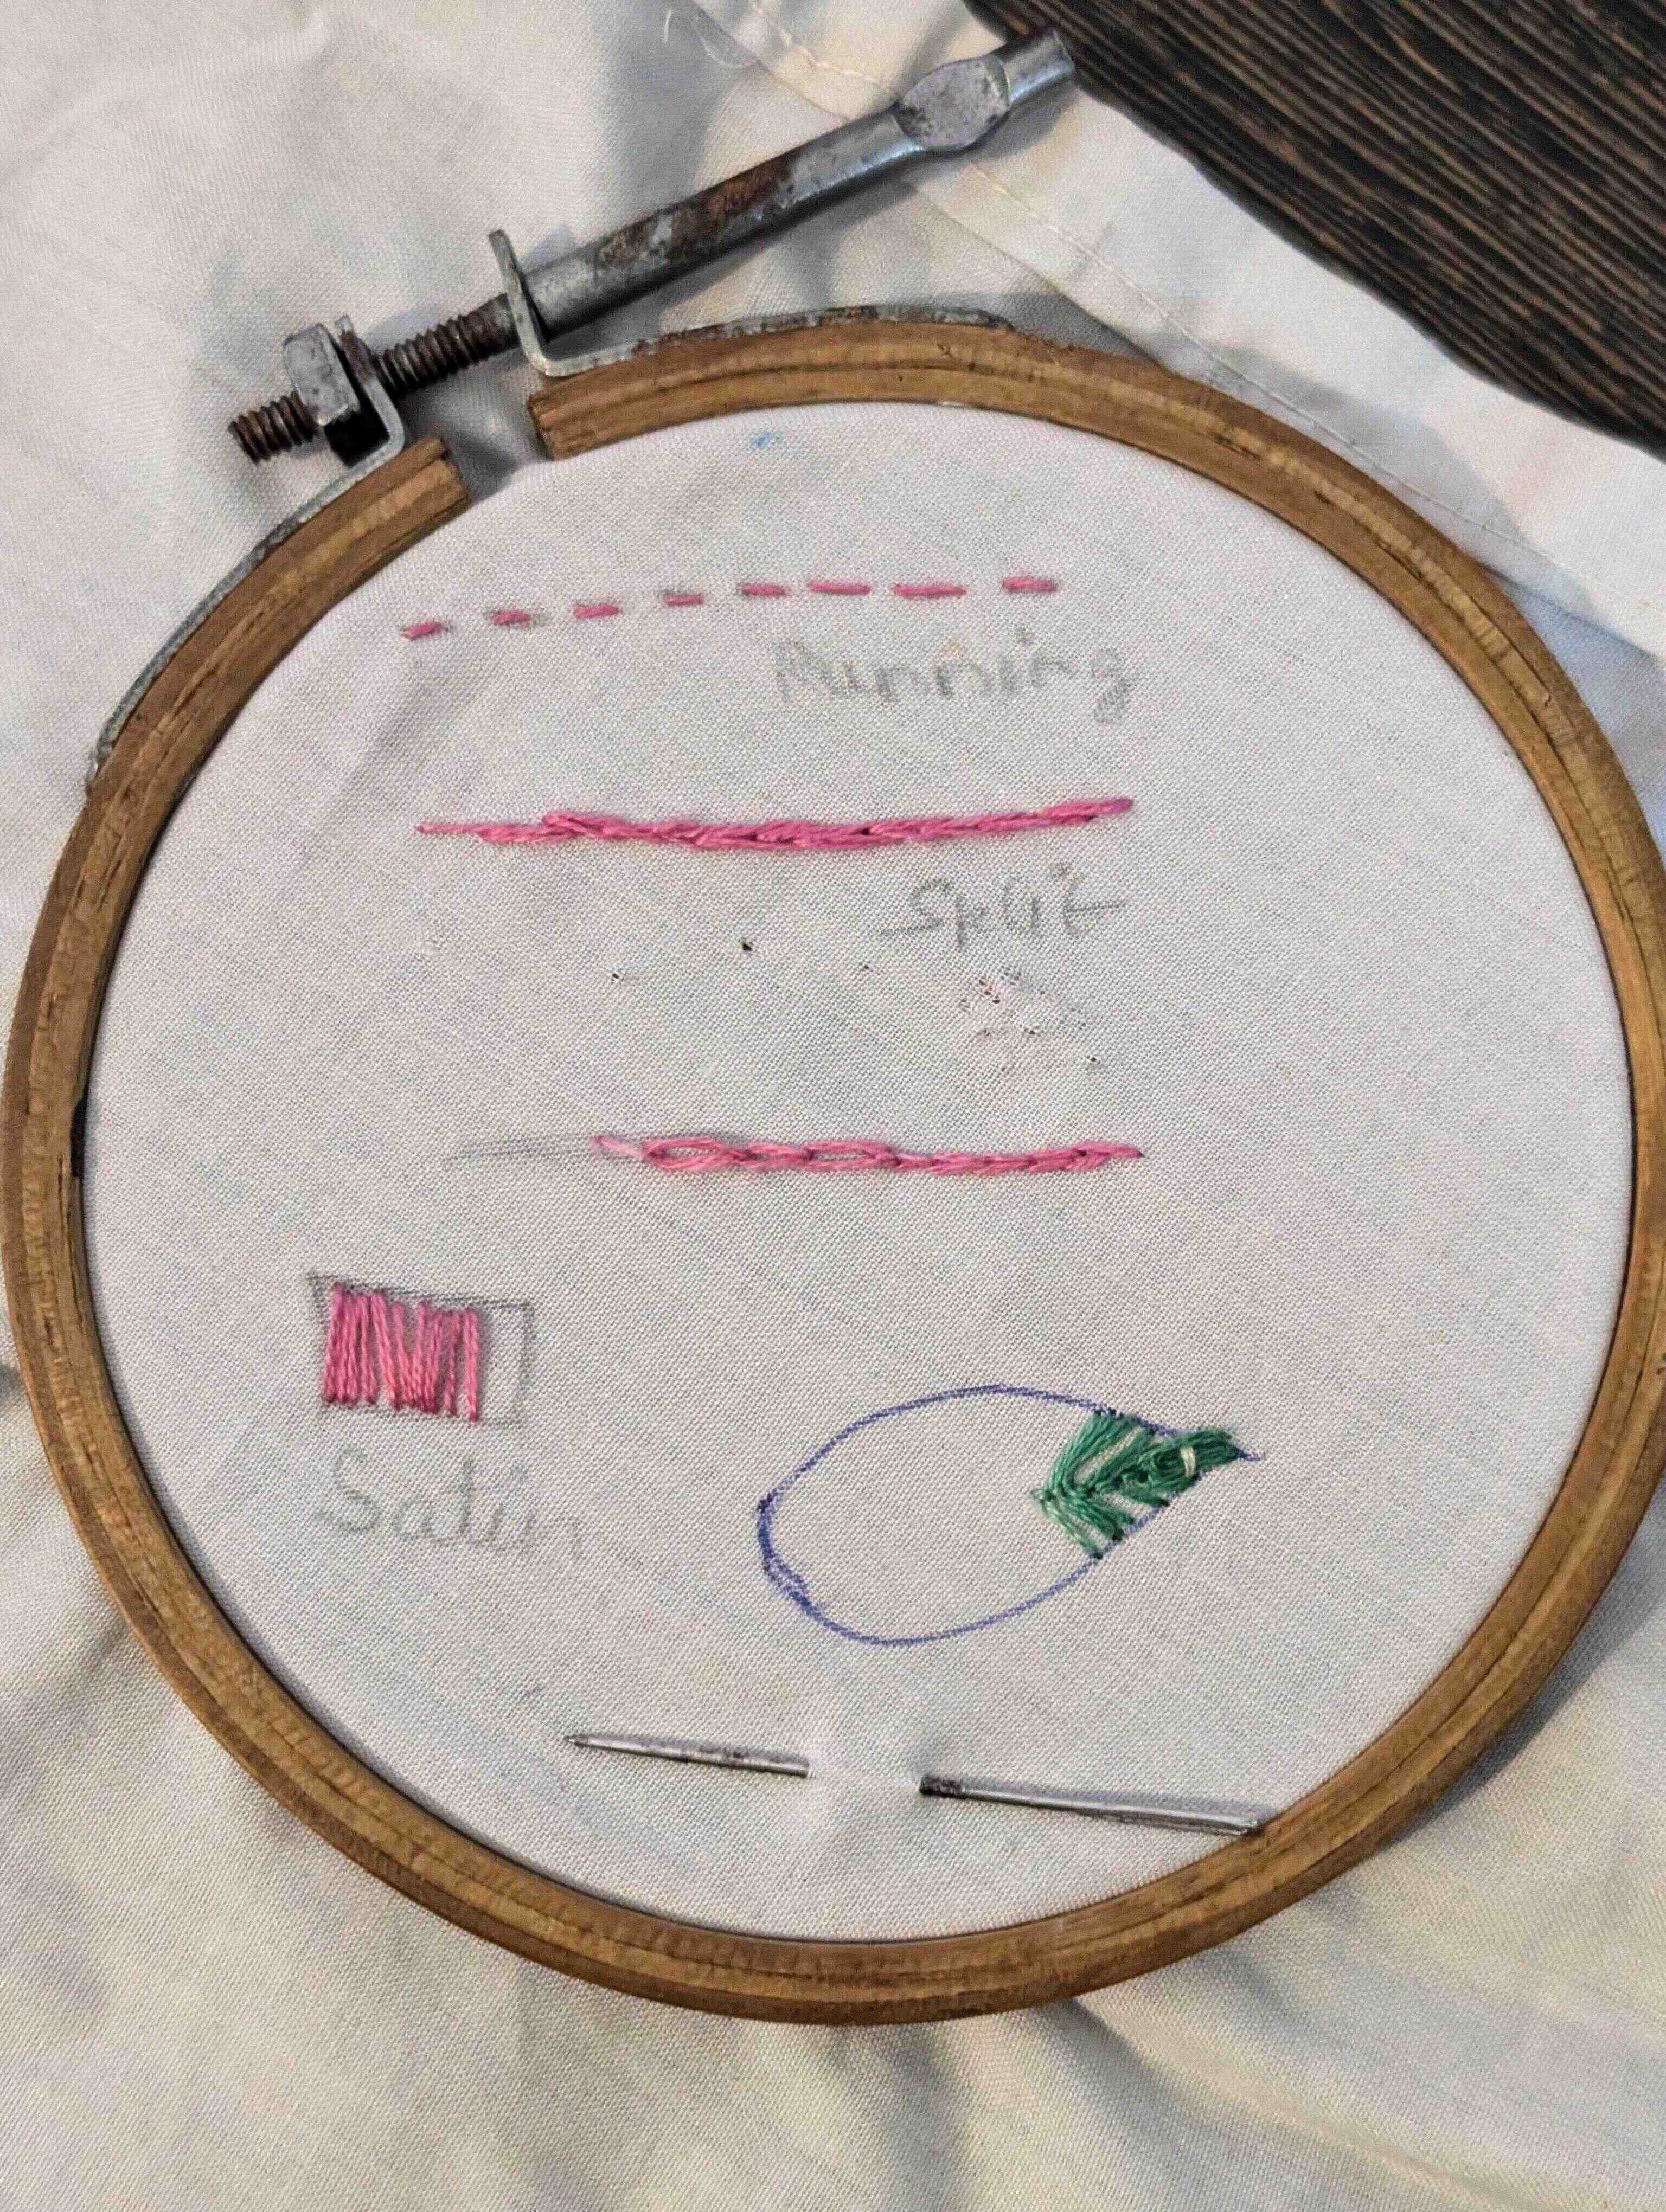 Running
Split
Satin